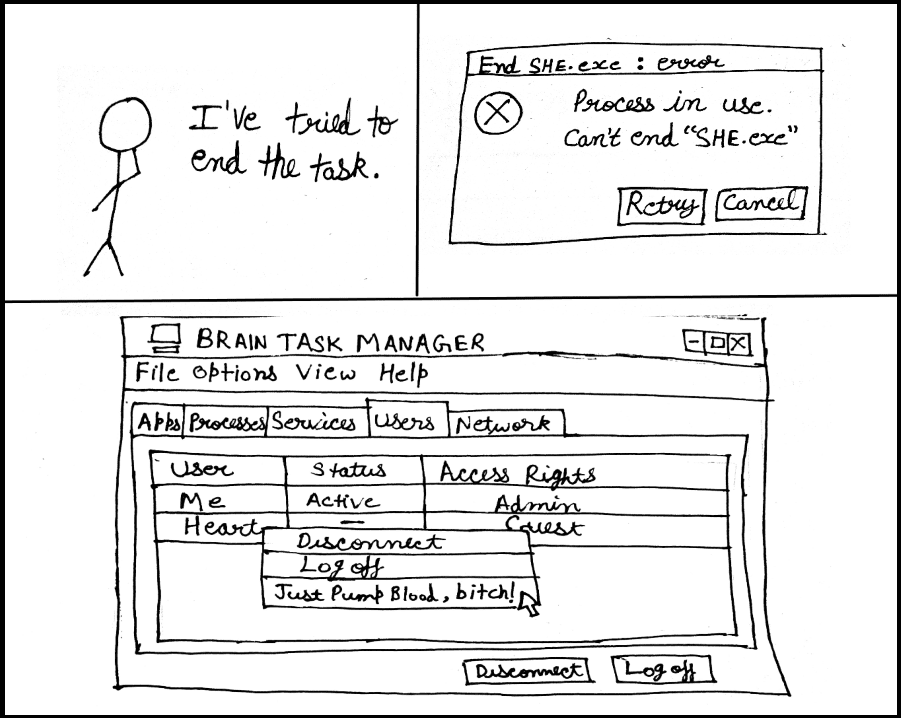 I've tried to
end the task.
End SHE.exe : error
Process in use.
Can't end "SHE.exe"
Retry Cancel
BRAIN TASK MANAGER
File Options View Help
Apps Processes Services Users Network
User Status Access Rights
Me Active Admin
Heart — Guest
Disconnect
Log off
Just Pump Blood, bitch!
Disconnect Log off